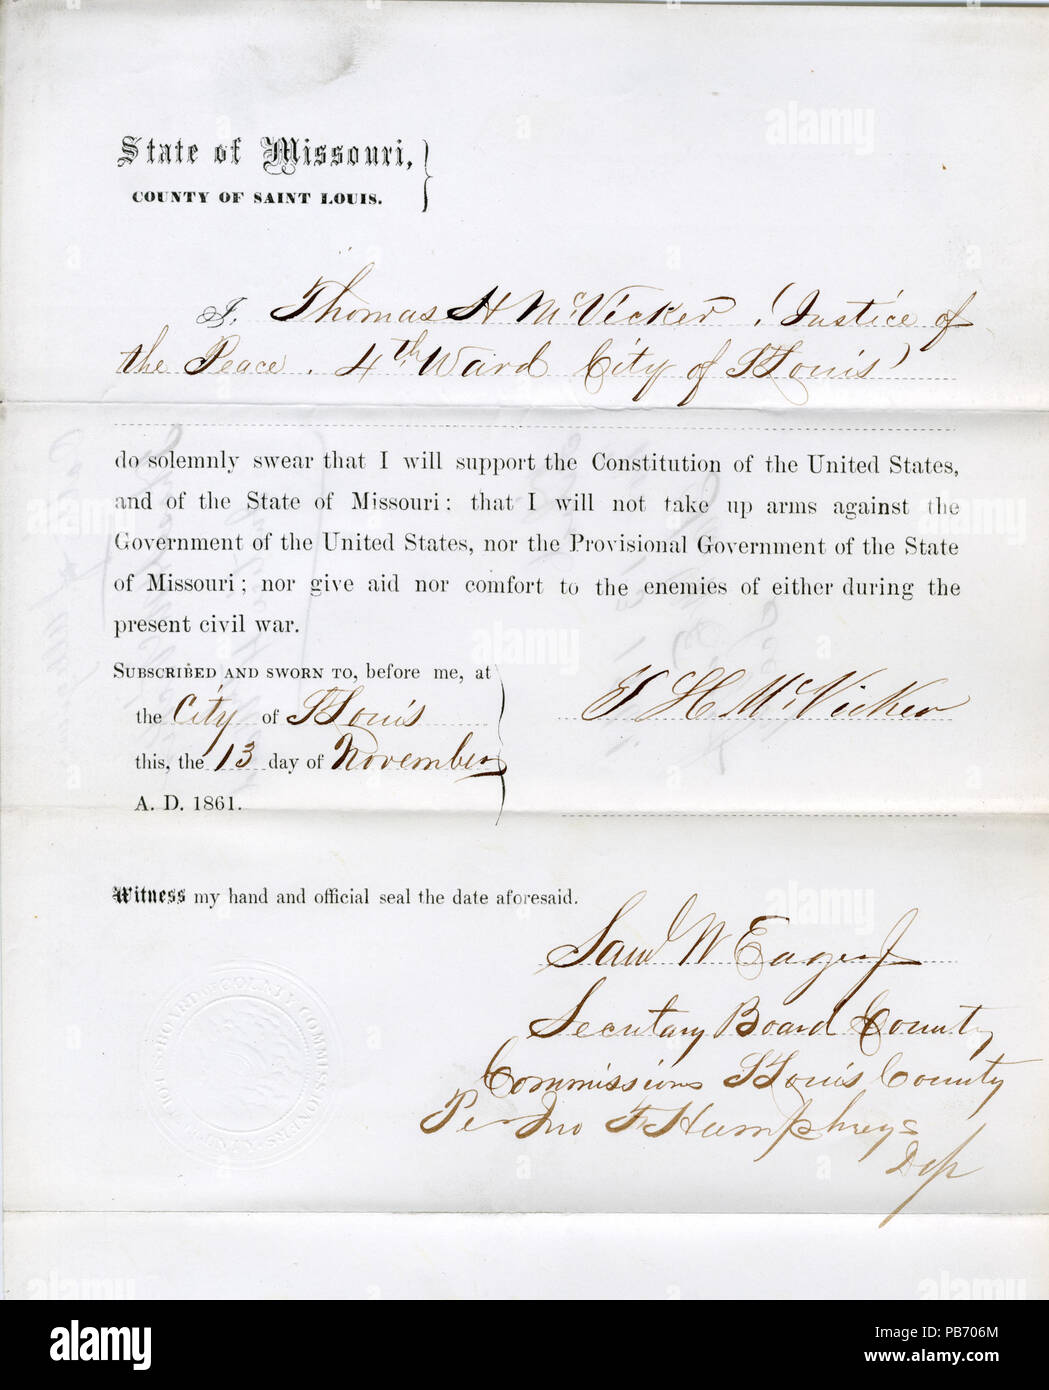 State of Missouri,
COUNTY OF SAINT LOUIS.
I, Thomas H McVicker, (Justice of
the Peace. 4th Ward City of StLouis)
do solemnly swear that I will support the Constitution of the United States,
and of the State of Missouri; that I will not take up arms against the
Government of the United States, nor the Provisional Government of the State
of Missouri; nor give aid nor comfort to the enemies of either during the
present civil war.
SUBSCRIBED AND SWORN TO, before me, at
the City of StLouis
this, the 13 day of November
A. D. 1861.
T H McVicker
Witness my hand and official seal the date aforesaid.
Saml W Eager Jr
Secretary Board County
Commissions StLouis County
Per Jno F Humphreys
Dep
BOARD OF COUNTY COMMISSIONERS
alamy
Image ID: PB706M
www.alamy.com